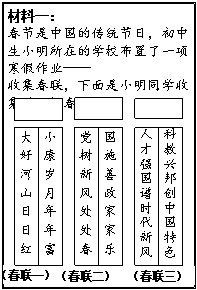 材料一：
春节是中国的传统节日，初中
生小明所在的学校布置了一项
寒假作业——
收集春联，下面是小明同学收
大好河山日日红
小康岁月年年富
党树新风处处春
国施善政家家乐
人才强国谱时代新风
科教兴邦创中国特色
（春联一）（春联二）（春联三）